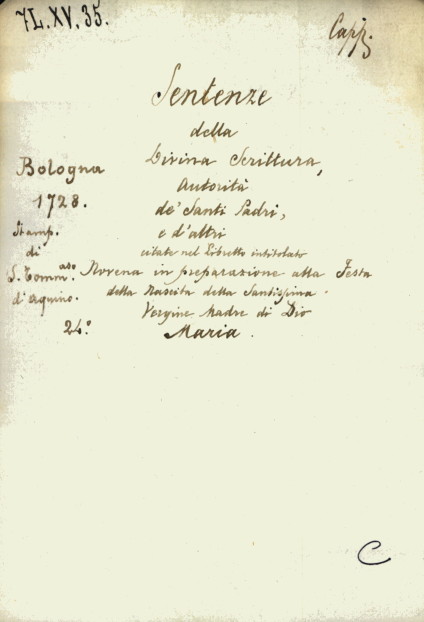 7L.XV.35.
Capp.
Sentenze
della
Divina Scrittura,
Autorità
de' Santi Padri,
e d'altri
citate nel Libretto intitolato
Novena in preparazione alla Festa
della Nascita della Santissima
Vergine Madre di Dio
Maria.
Bologna
1728.
Stamp.
di
S. Tommaso
d'Aquino.
24.º
C